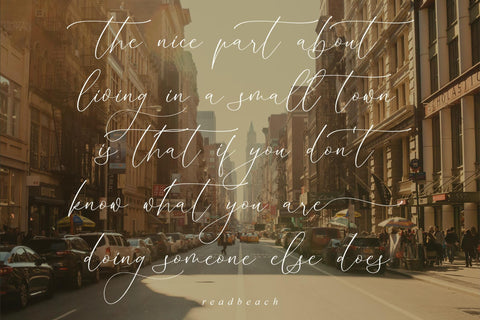 the nice part about
living in a small town
is that if you don't
know what you are
doing someone else does.
readbeach
SCHOLASTIC